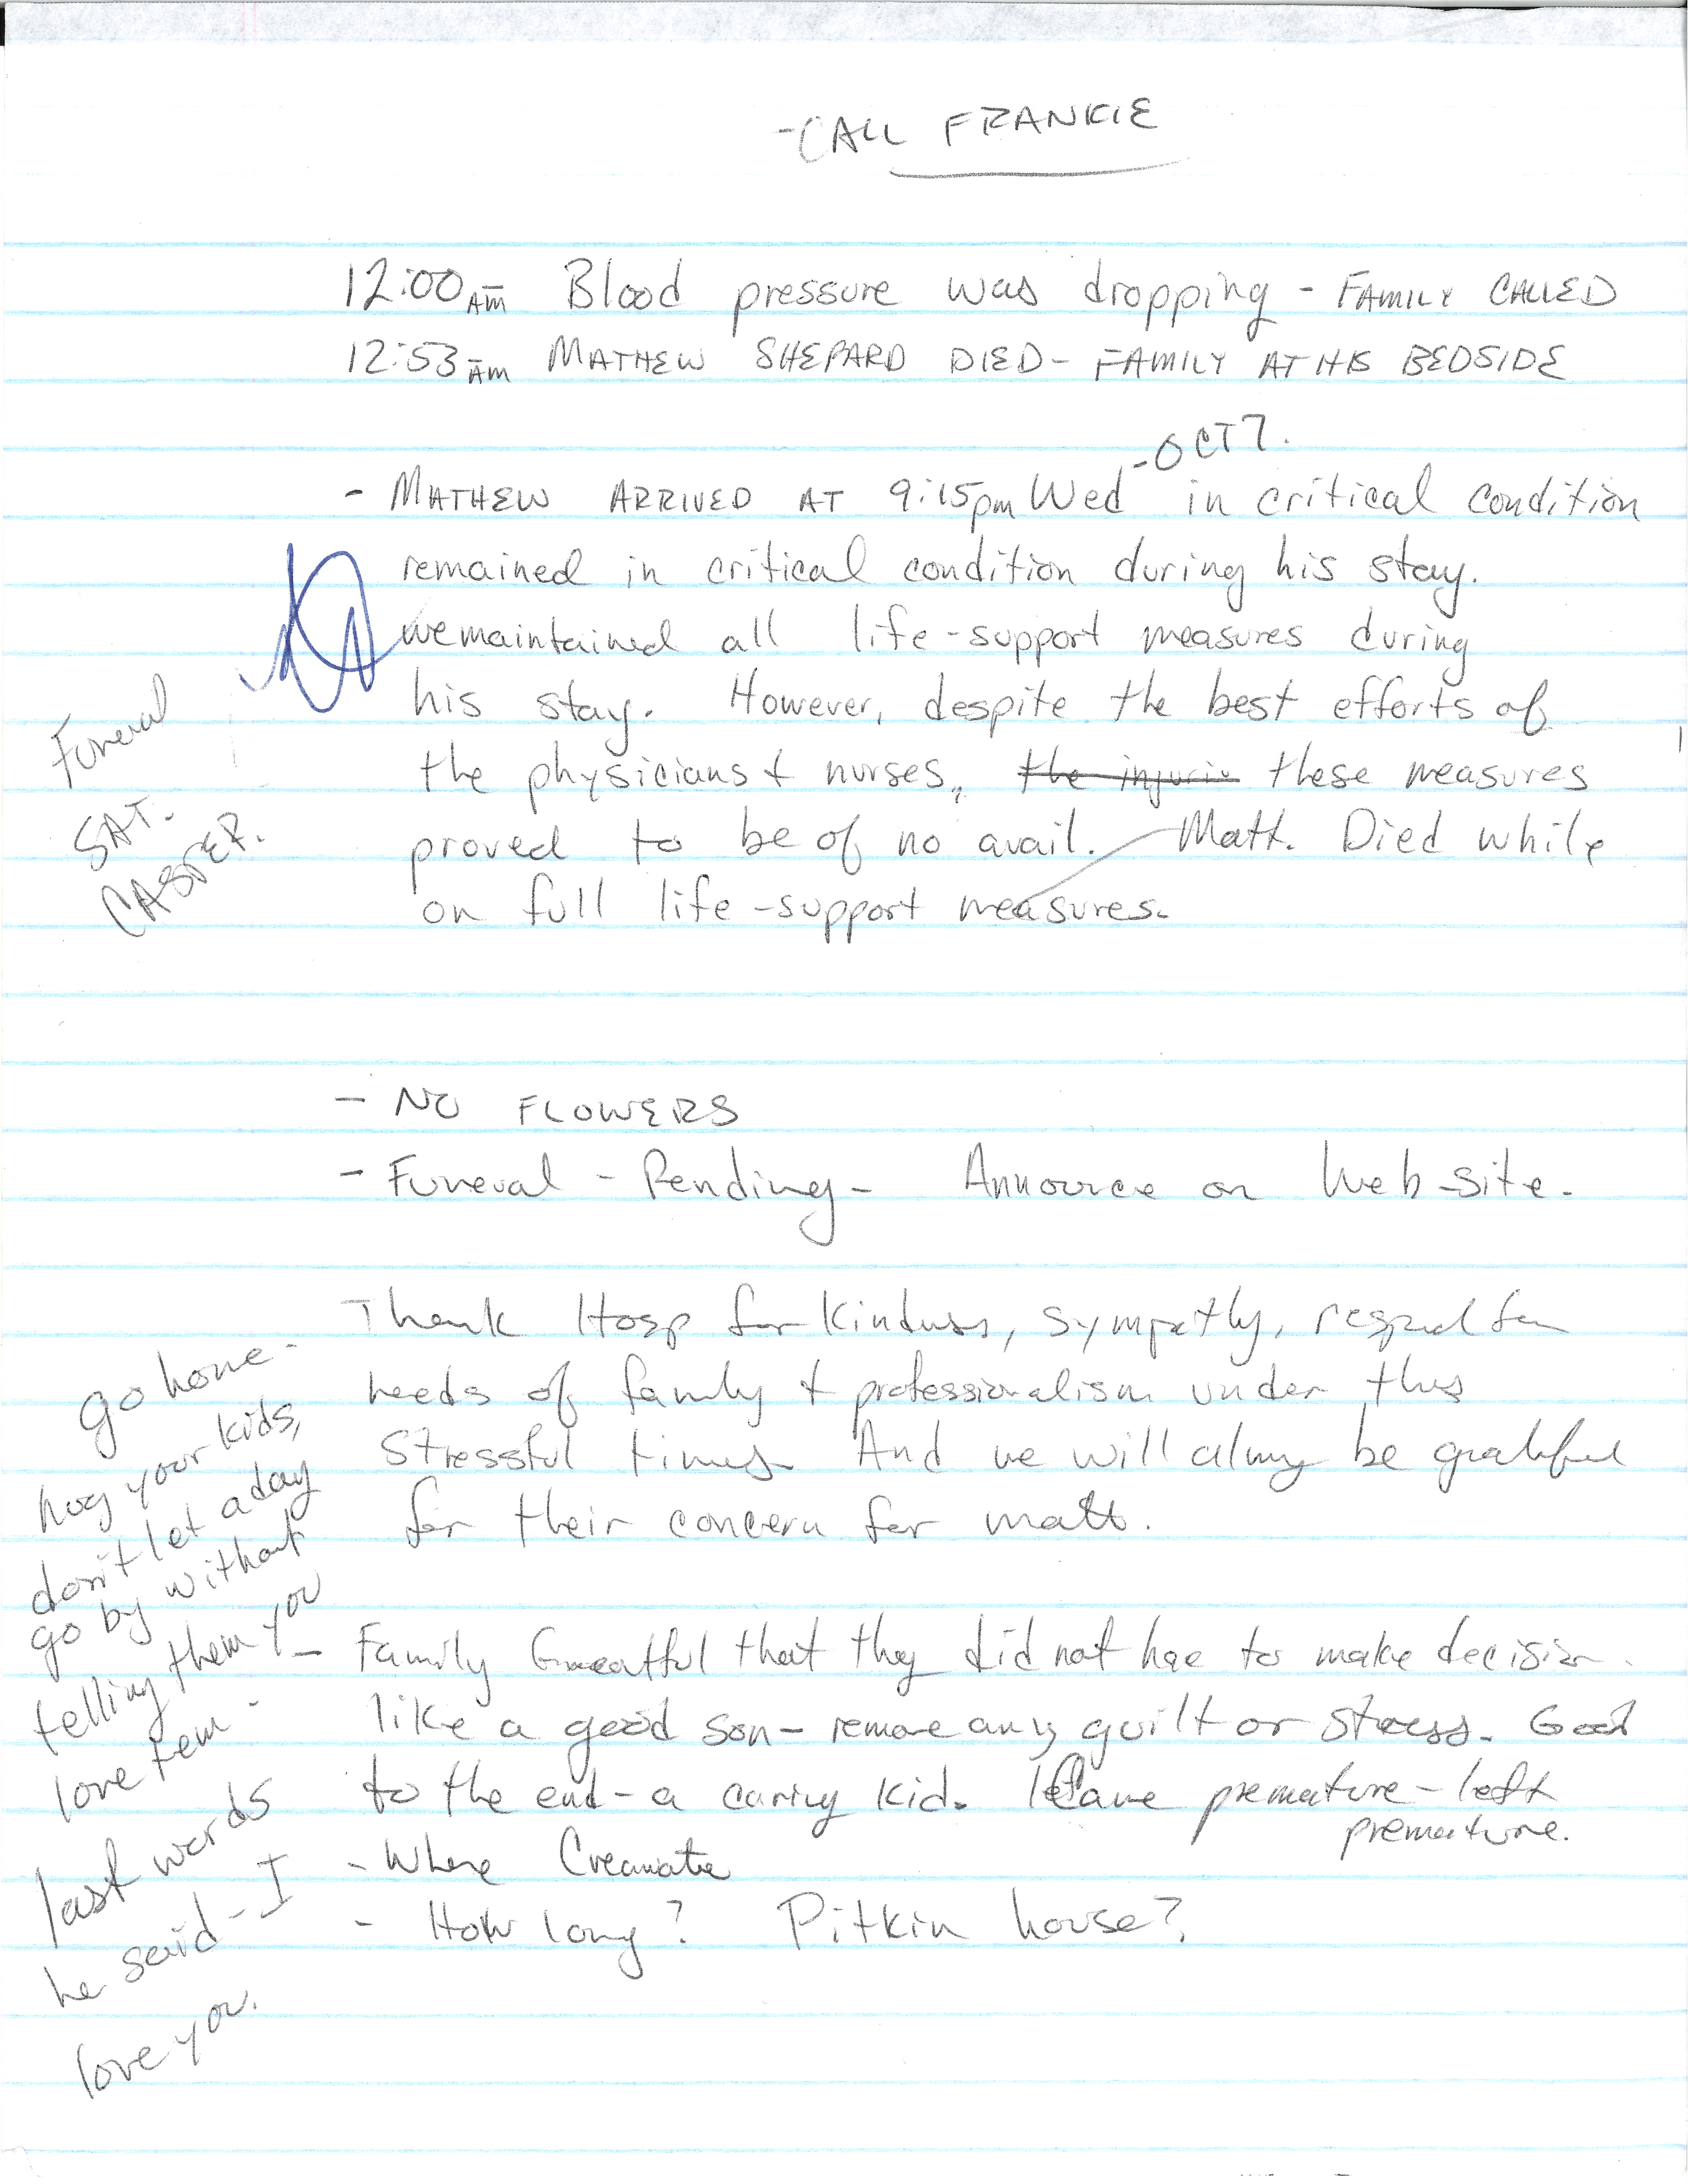 -CALL FRANKIE
12:00 AM Blood pressure was dropping - FAMILY CALLED
12:53 AM MATHEW SHEPARD DIED - FAMILY AT HIS BEDSIDE
-OCT 7.
- MATHEW ARRIVED AT 9:15pm Wed in critical condition
remained in critical condition during his stay.
we maintained all life-support measures during
his stay. However, despite the best efforts of
the physicians & nurses, the injurie these measures
proved to be of no avail. Matt. Died while
on full life-support measures.
Funeral
SAT.
CASPER.
- NO FLOWERS
- Funeral - Pending - Announce on Web-site.
Thank Hosp for kindness, sympathy, respect for
needs of family & professionalism under this
stressful times. And we will always be grateful
for their concern for matt.
- Family Greatful that they did not hae to make decision.
like a good son - remove any guilt or stress. Good
to the end - a caring kid. Came premature - left
premature.
- Where Creamate
- How long? Pitkin house?
go home -
hug your kids,
don't let a day
go by without
telling them you
love tem -
last words
he said - I
love you.